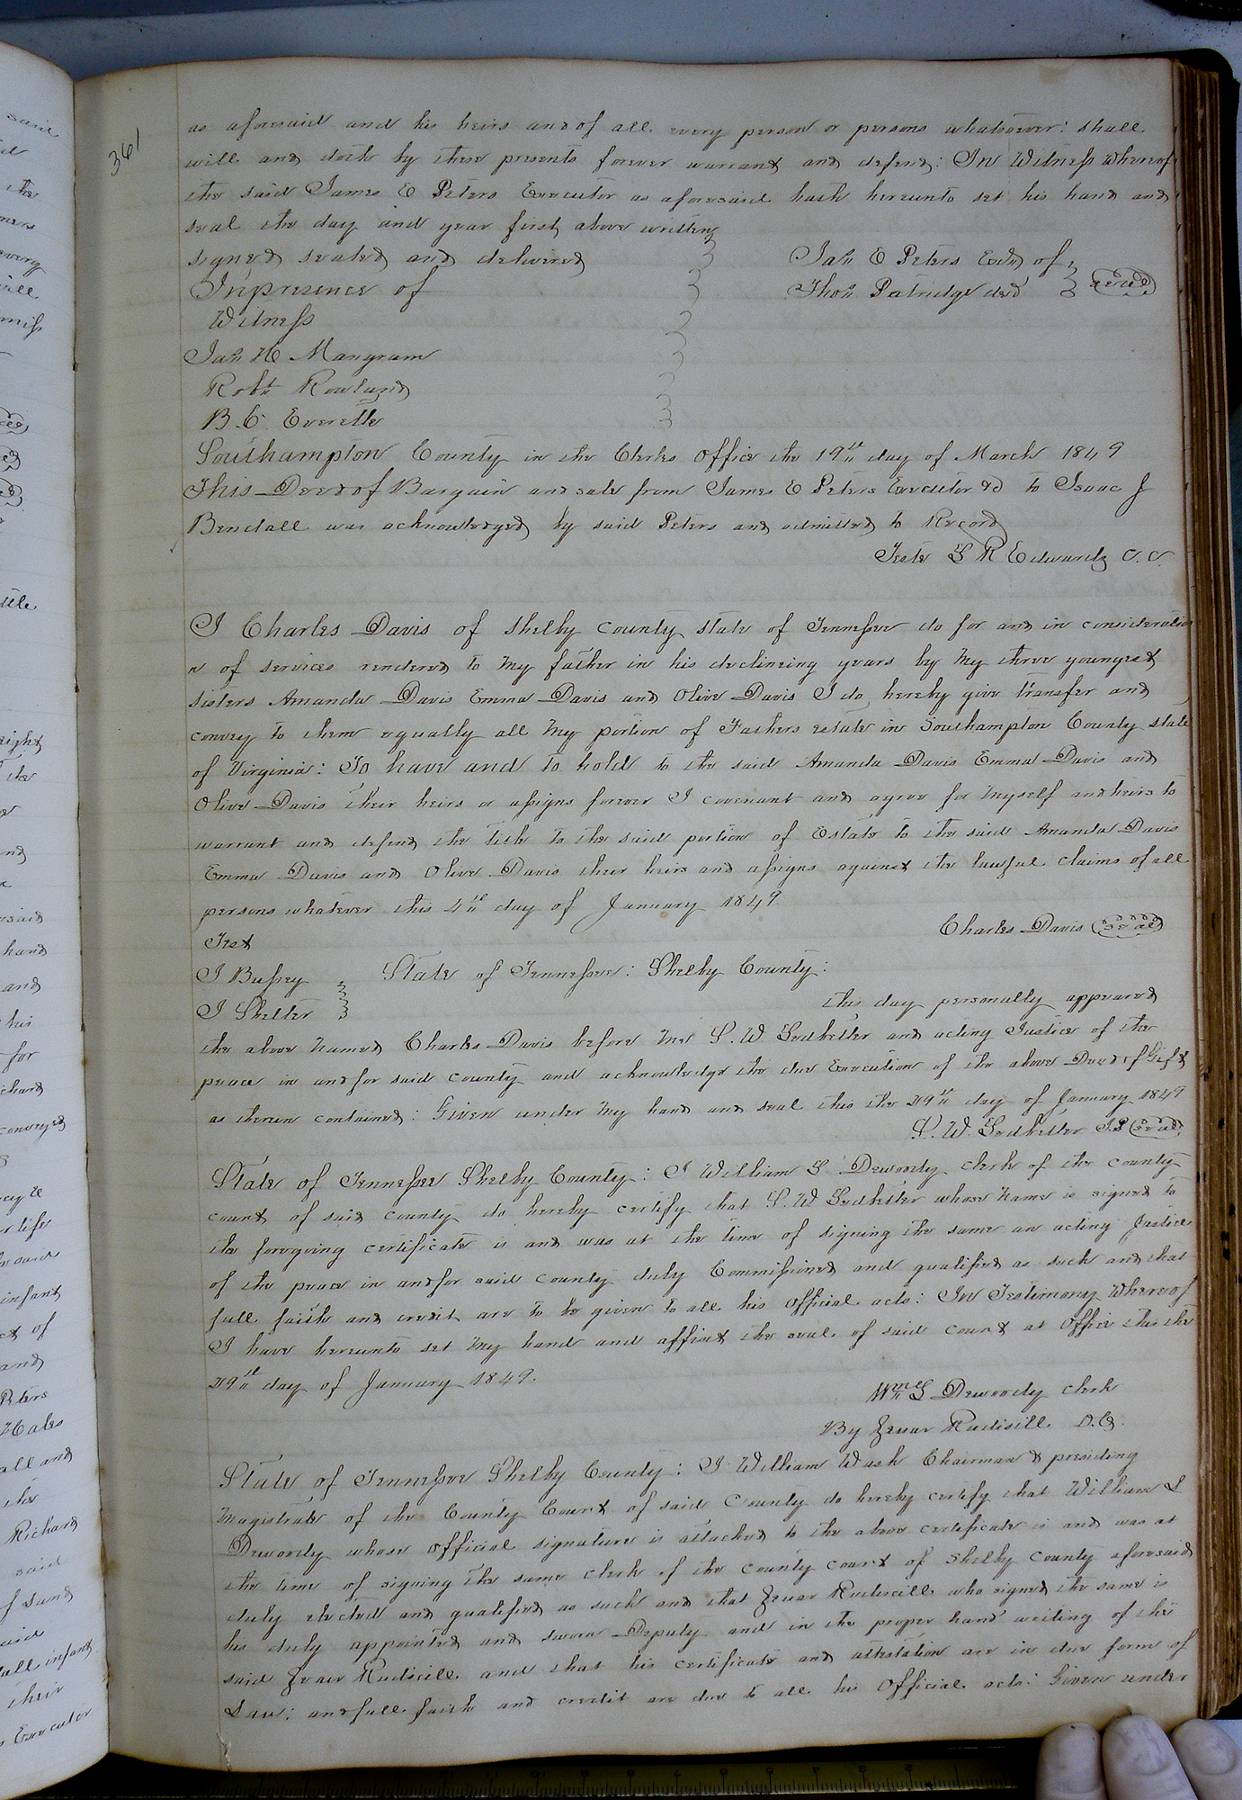 361
as aforesaid and his heirs and of all every person or persons whatsoever: shall
will and doth by these presents forever warrant and defend: In Witness Whereof
the said James E Peters Executor as aforesaid hath hereunto set his hand and
seal the day and year first above written
signed sealed and delivered
Inpresence of
Witness
Jas H Mangram
Robt Rowland
B. C. Everette
Jas E Peters Exdr of
Thos Patridge decd
seal
Southampton County in the Clerks Office the 19th day of March 1849
This Deed of Bargain and sale from James E Peters Executor &c to Isaac J
Bendall was acknowledged by said Peters and admitted to Record
Teste L R Edwards C. C.
I Charles Davis of Shelby County State of Tennessee do for and in consideratio
n of services rendered to My father in his declineing years by My three youngest
sisters Amanda Davis Emma Davis and Olive Davis I do hereby give transfer and
convey to them equally all My portion of Fathers estate in Southampton County state
of Virginia: To have and To hold to the said Amanda Davis Emma Davis and
Olive Davis their heirs or assigns forever I covenant and agree for Myself and heirs to
warrant and defend the title to the said portion of Estate to the said Amanda Davis
Emma Davis and Olive Davis their heirs and assigns against the lawful claims of all
persons whatever this 4th day of January 1849
Charles Davis seal
Test
I Bussey
I Shelter
State of Tennessee: Shelby County:
this day personally appeared
the above Named Charles Davis before me L. W. Ledbetter and acting Justice of the
peace in and for said County and acknowledge the due Execution of the above Deed of Gift
as therein contained: Given under My hand and seal this the 29th day of January 1849
L. W. Ledbetter J.P. seal
State of Tennessee Shelby County: I William L Dewoody clerk of the county
court of said county do hereby certify that L. W Ledbetter whose Name is signed to
the foregoing certificate is and was at the time of signing the same an acting Justice
of the peace in and for said County duly Commissioned and qualified as such and that
full faith and credit are to be given to all his Official acts: In Testimony Whereof
I have hereunto set My hand and affixed the seal of said Court at Office this the
29th day of January 1849.
Wm L Dewoody clerk
By Rudisill D.C.
State of Tennessee Shelby County: I William Wash Chairman & presiding
Magistrate of the County Court of said County do hereby certify that William L
Dewoody whose Official signature is attached to the above certificate is and was at
the time of signing the same clerk of the county court of Shelby County aforesaid
duly elected and qualified as such and that Rudiscill who signed the same is
his duly appointed and sworn Deputy and in the proper hand writing of the
said Rudiscill and that his certificate and attestation are in due form of
Law: and full faith and credit are due to all his Official acts: Given under